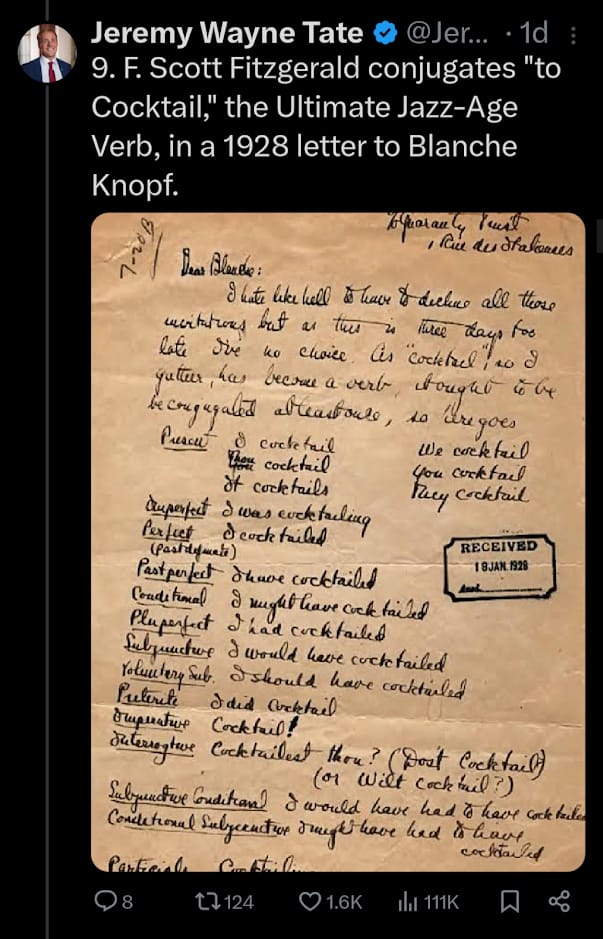 Jeremy Wayne Tate @Jer... · 1d
9. F. Scott Fitzgerald conjugates "to
Cocktail," the Ultimate Jazz-Age
Verb, in a 1928 letter to Blanche
Knopf.
Guaranty Trust
1 Rue des Italiennes
Dear Blanche:
I hate like hell to have to decline all those
invitations but as this is three days too
late I've no choice. As "cocktail", so I
gather, has become a verb, it ought to be
be conjugated at least once, so here goes
Present I cocktail We cocktail
Thou cocktail You cocktail
It cocktails They cocktail
Imperfect I was cocktailing
Perfect I cocktailed
(past definate)
Past perfect I have cocktailed
Conditional I might have cocktailed
Pluperfect I had cocktailed
Subjunctive I would have cocktailed
Voluntary Sub. I should have cocktailed
Preterite I did cocktail
Imperative Cocktail!
Interrogtive Cocktailest thou? (Dos't Cocktail)
(or Wilt Cocktail?)
Subjunctive Conditional I would have had to have cocktailed
Conditional Subjunctive I might have had to have
cocktailed
Participle Cocktailing
RECEIVED
18 JAN. 1928
8 124 1.6K 111K